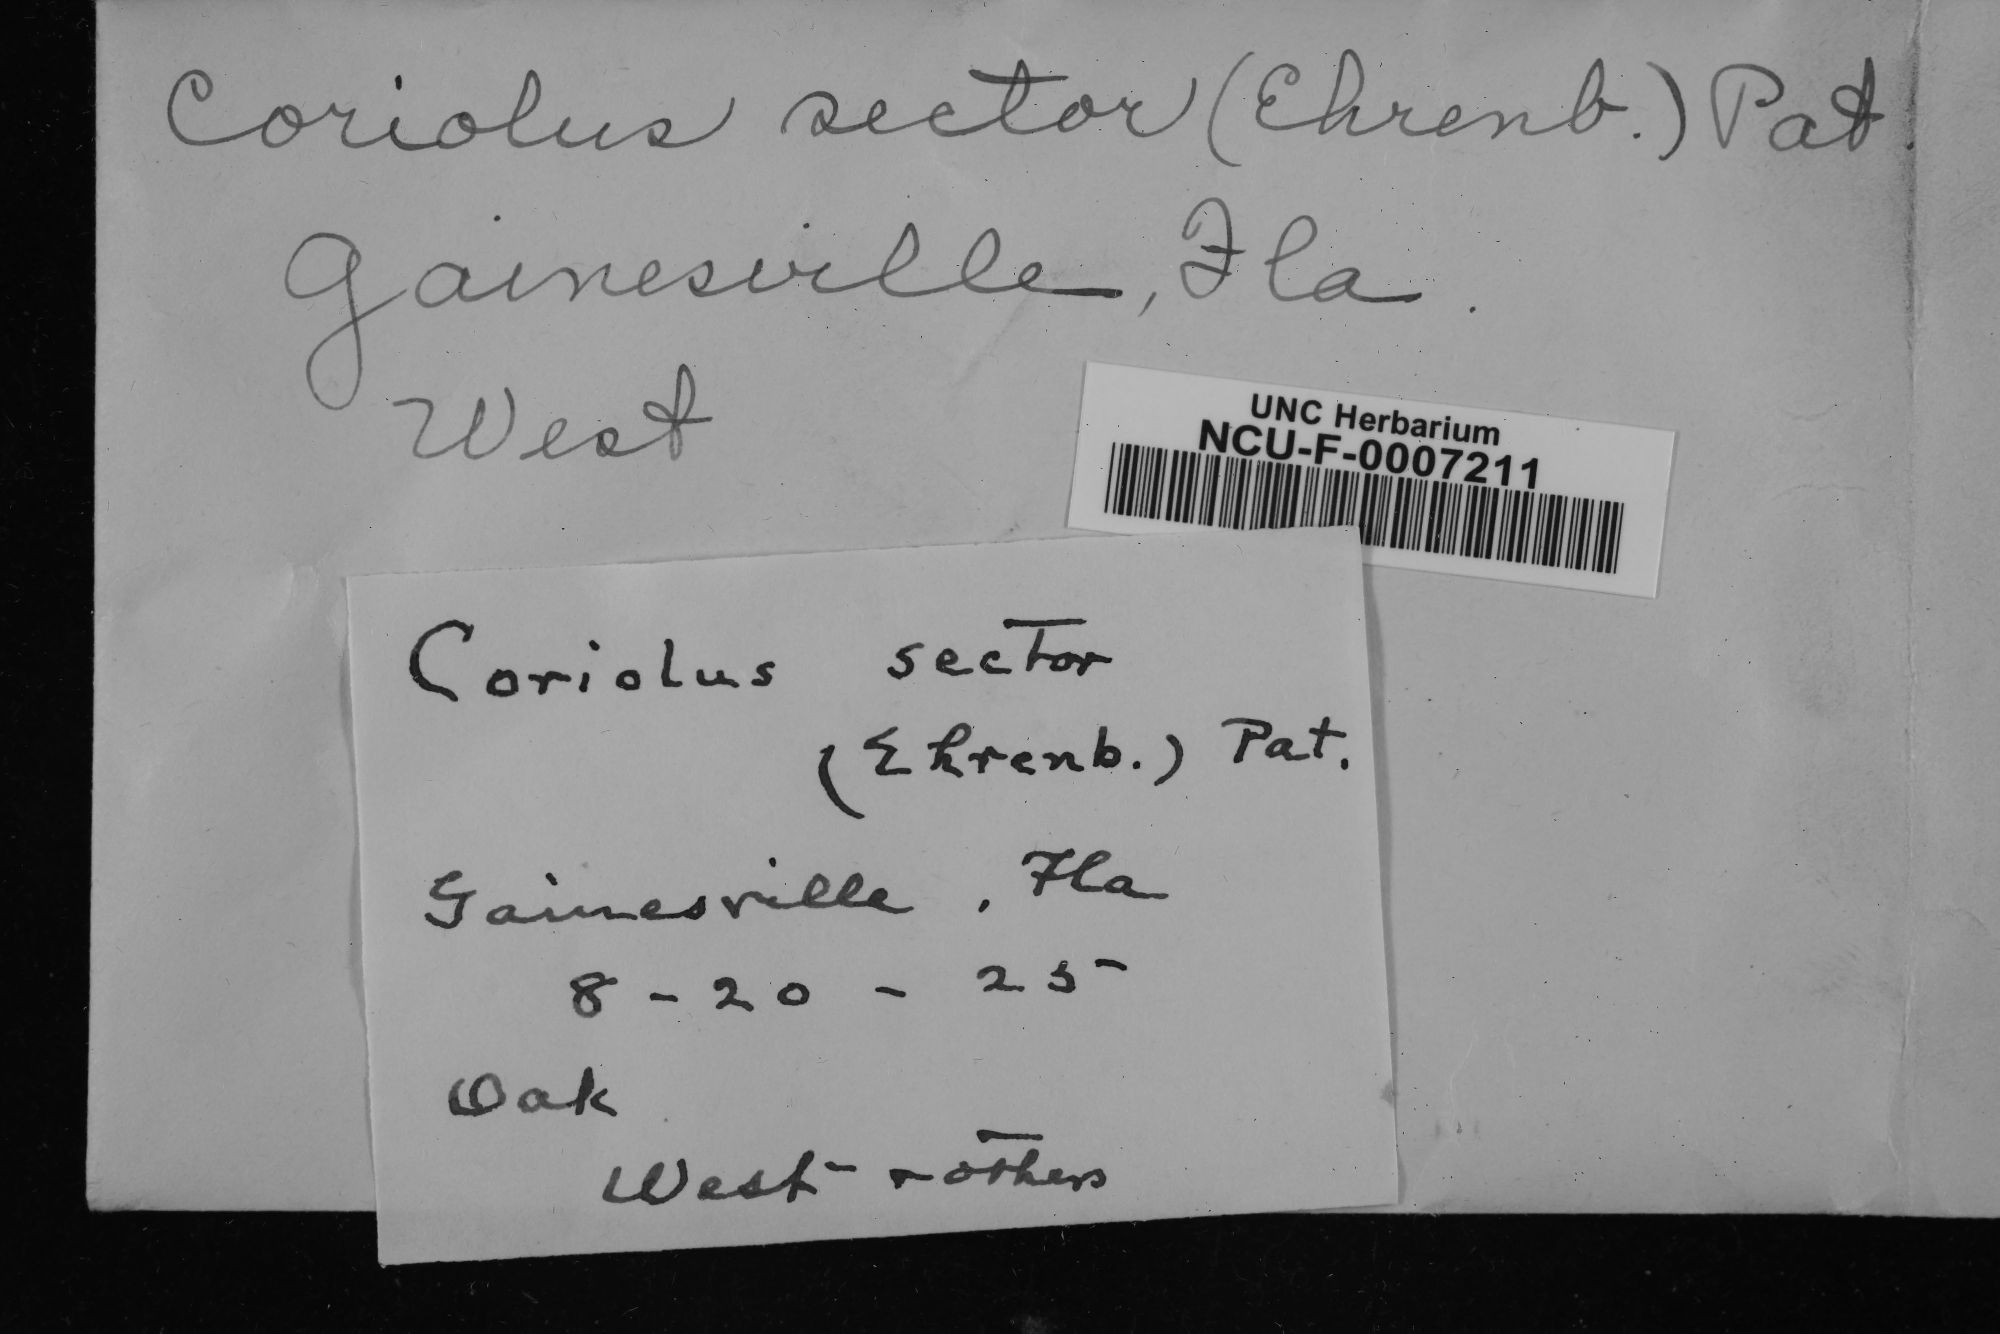 Coriolus sector (Ehrenb.) Pat.
Gainesville, Fla.
West
UNC Herbarium
NCU-F-0007211
Coriolus sector
(Ehrenb.) Pat.
Gainesville, Fla
8-20-25
Oak
West & others